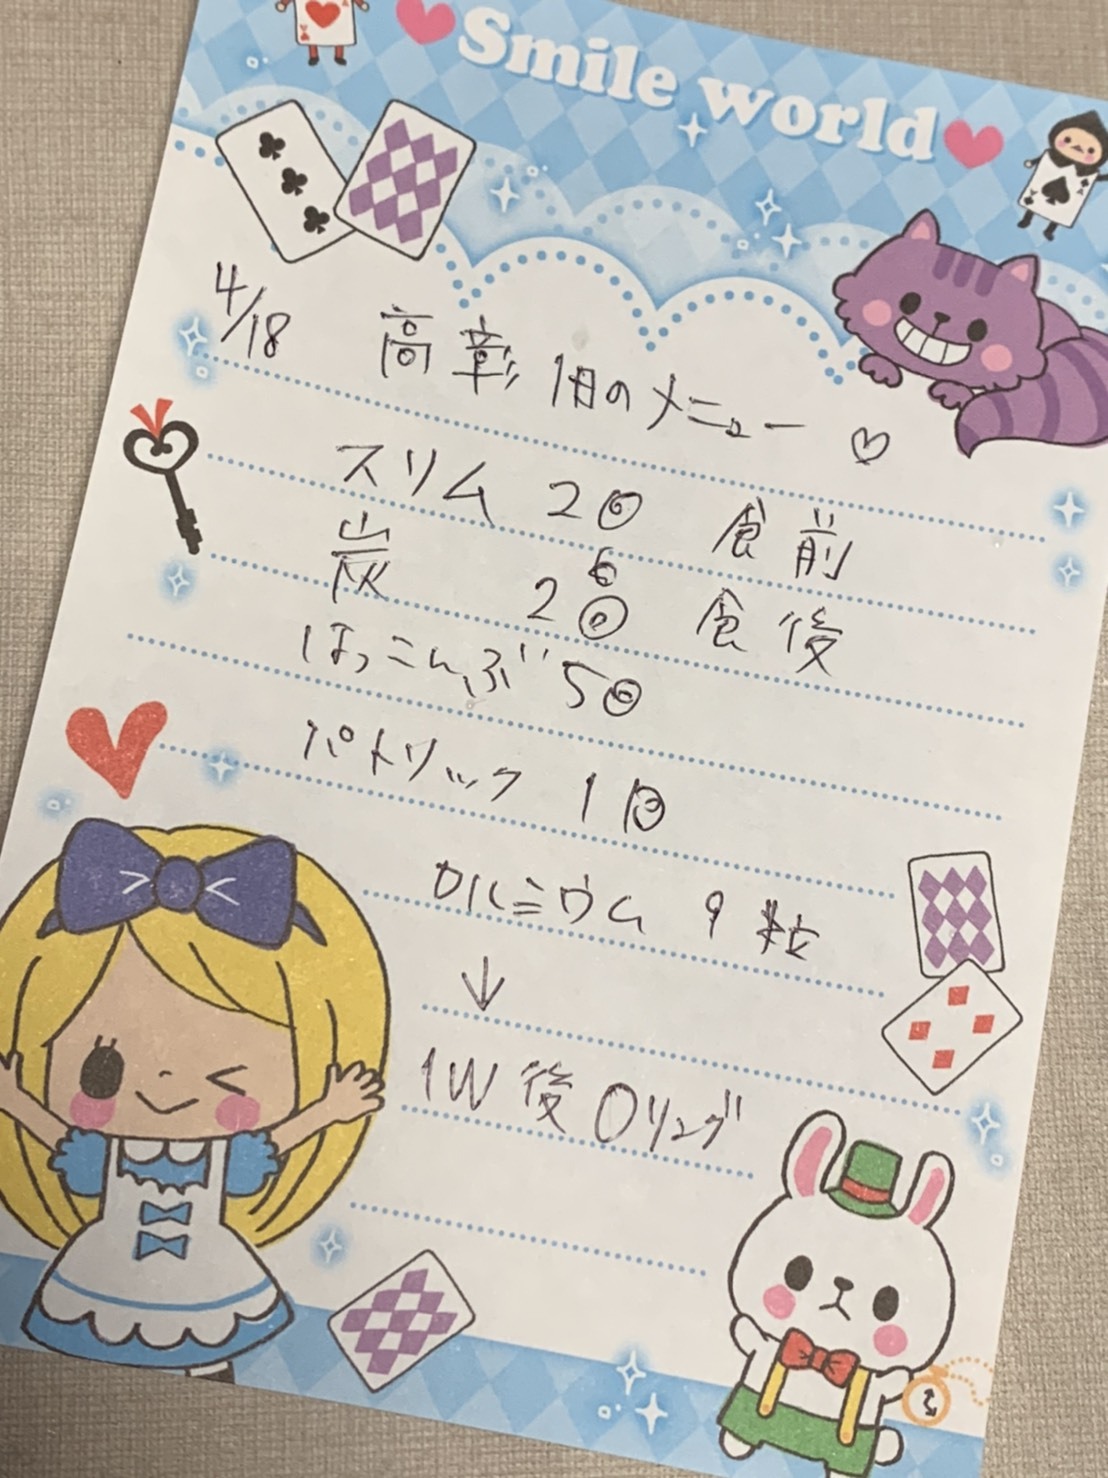 Smile world
4/18 高彰 1日のメニュー ♡
スリム 2回 食前
炭 2回 食後
ほっこんぶ 5回
パトリック 1日
ルミウム 9粒
↓
1W後 Oリング